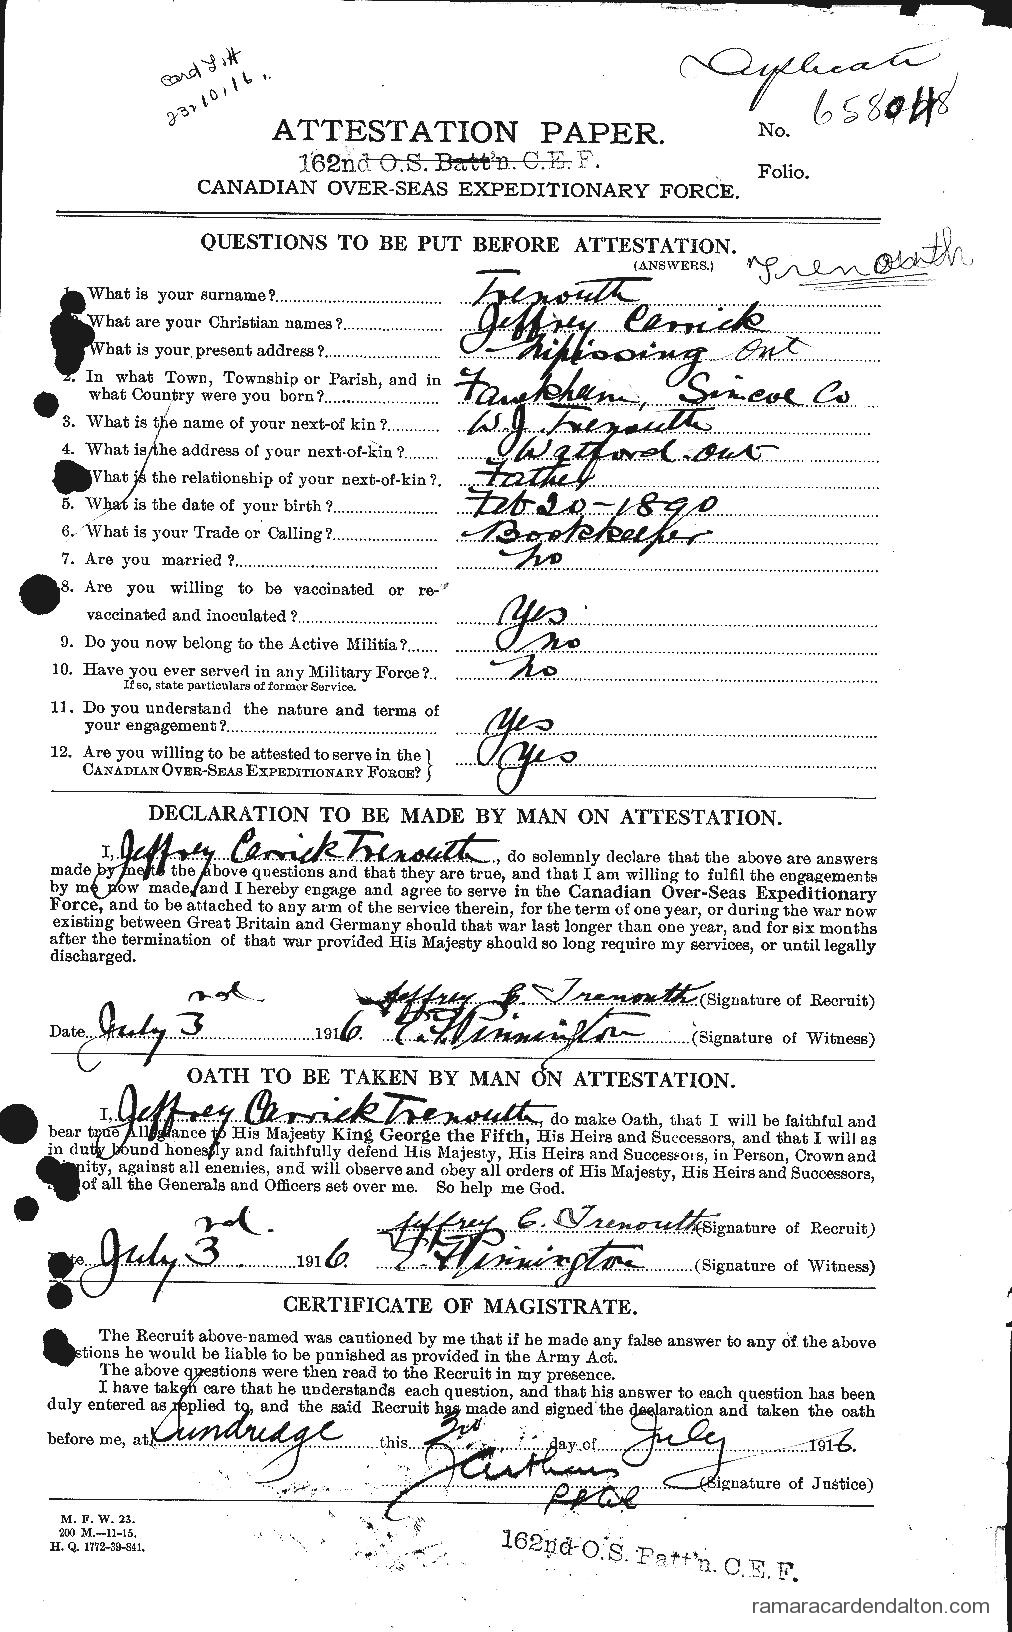 Duplicate
card
23-10-16.
ATTESTATION PAPER.
No. 658048
162nd O.S. Batt'n. C.E.F.
Folio.
CANADIAN OVER-SEAS EXPEDITIONARY FORCE.
QUESTIONS TO BE PUT BEFORE ATTESTATION.
(ANSWERS.)
Trenouth
1. What is your surname? Trenouth
What are your Christian names? Jeffrey Carrick
What is your present address? Nipissing Ont
2. In what Town, Township or Parish, and in
what Country were you born? Simcoe Co
3. What is the name of your next-of kin? W. J. Trenouth
4. What is the address of your next-of-kin? Watford Ont
What is the relationship of your next-of-kin? Father
5. What is the date of your birth? Feb 20-1890
6. What is your Trade or Calling? Bookkeeper
7. Are you married? no
8. Are you willing to be vaccinated or re-
vaccinated and inoculated? Yes
9. Do you now belong to the Active Militia? no
10. Have you ever served in any Military Force? no
If so, state particulars of former Service.
11. Do you understand the nature and terms of
your engagement? Yes
12. Are you willing to be attested to serve in the
CANADIAN OVER-SEAS EXPEDITIONARY FORCE? Yes
DECLARATION TO BE MADE BY MAN ON ATTESTATION.
I, Jeffrey Carrick Trenouth, do solemnly declare that the above are answers
made by me to the above questions and that they are true, and that I am willing to fulfil the engagements
by me now made, and I hereby engage and agree to serve in the Canadian Over-Seas Expeditionary
Force, and to be attached to any arm of the service therein, for the term of one year, or during the war now
existing between Great Britain and Germany should that war last longer than one year, and for six months
after the termination of that war provided His Majesty should so long require my services, or until legally
discharged.
Jeffrey C. Trenouth (Signature of Recruit)
Date July 3rd 1916. Pinnington (Signature of Witness)
OATH TO BE TAKEN BY MAN ON ATTESTATION.
I, Jeffrey Carrick Trenouth, do make Oath, that I will be faithful and
bear true Allegiance to His Majesty King George the Fifth, His Heirs and Successors, and that I will as
in duty bound honestly and faithfully defend His Majesty, His Heirs and Successors, in Person, Crown and
Dignity, against all enemies, and will observe and obey all orders of His Majesty, His Heirs and Successors,
and of all the Generals and Officers set over me. So help me God.
Jeffrey C. Trenouth (Signature of Recruit)
Date July 3rd 1916. Pinnington (Signature of Witness)
CERTIFICATE OF MAGISTRATE.
The Recruit above-named was cautioned by me that if he made any false answer to any of the above
questions he would be liable to be punished as provided in the Army Act.
The above questions were then read to the Recruit in my presence.
I have taken care that he understands each question, and that his answer to each question has been
duly entered as replied to, and the said Recruit has made and signed the declaration and taken the oath
before me, at Sundridge this 3rd day of July 1916.
(Signature of Justice)
M. F. W. 23.
200 M.—11-15.
H. Q. 1772-39-841.
162nd O.S. Batt'n. C.E.F.
ramaracardendalton.com